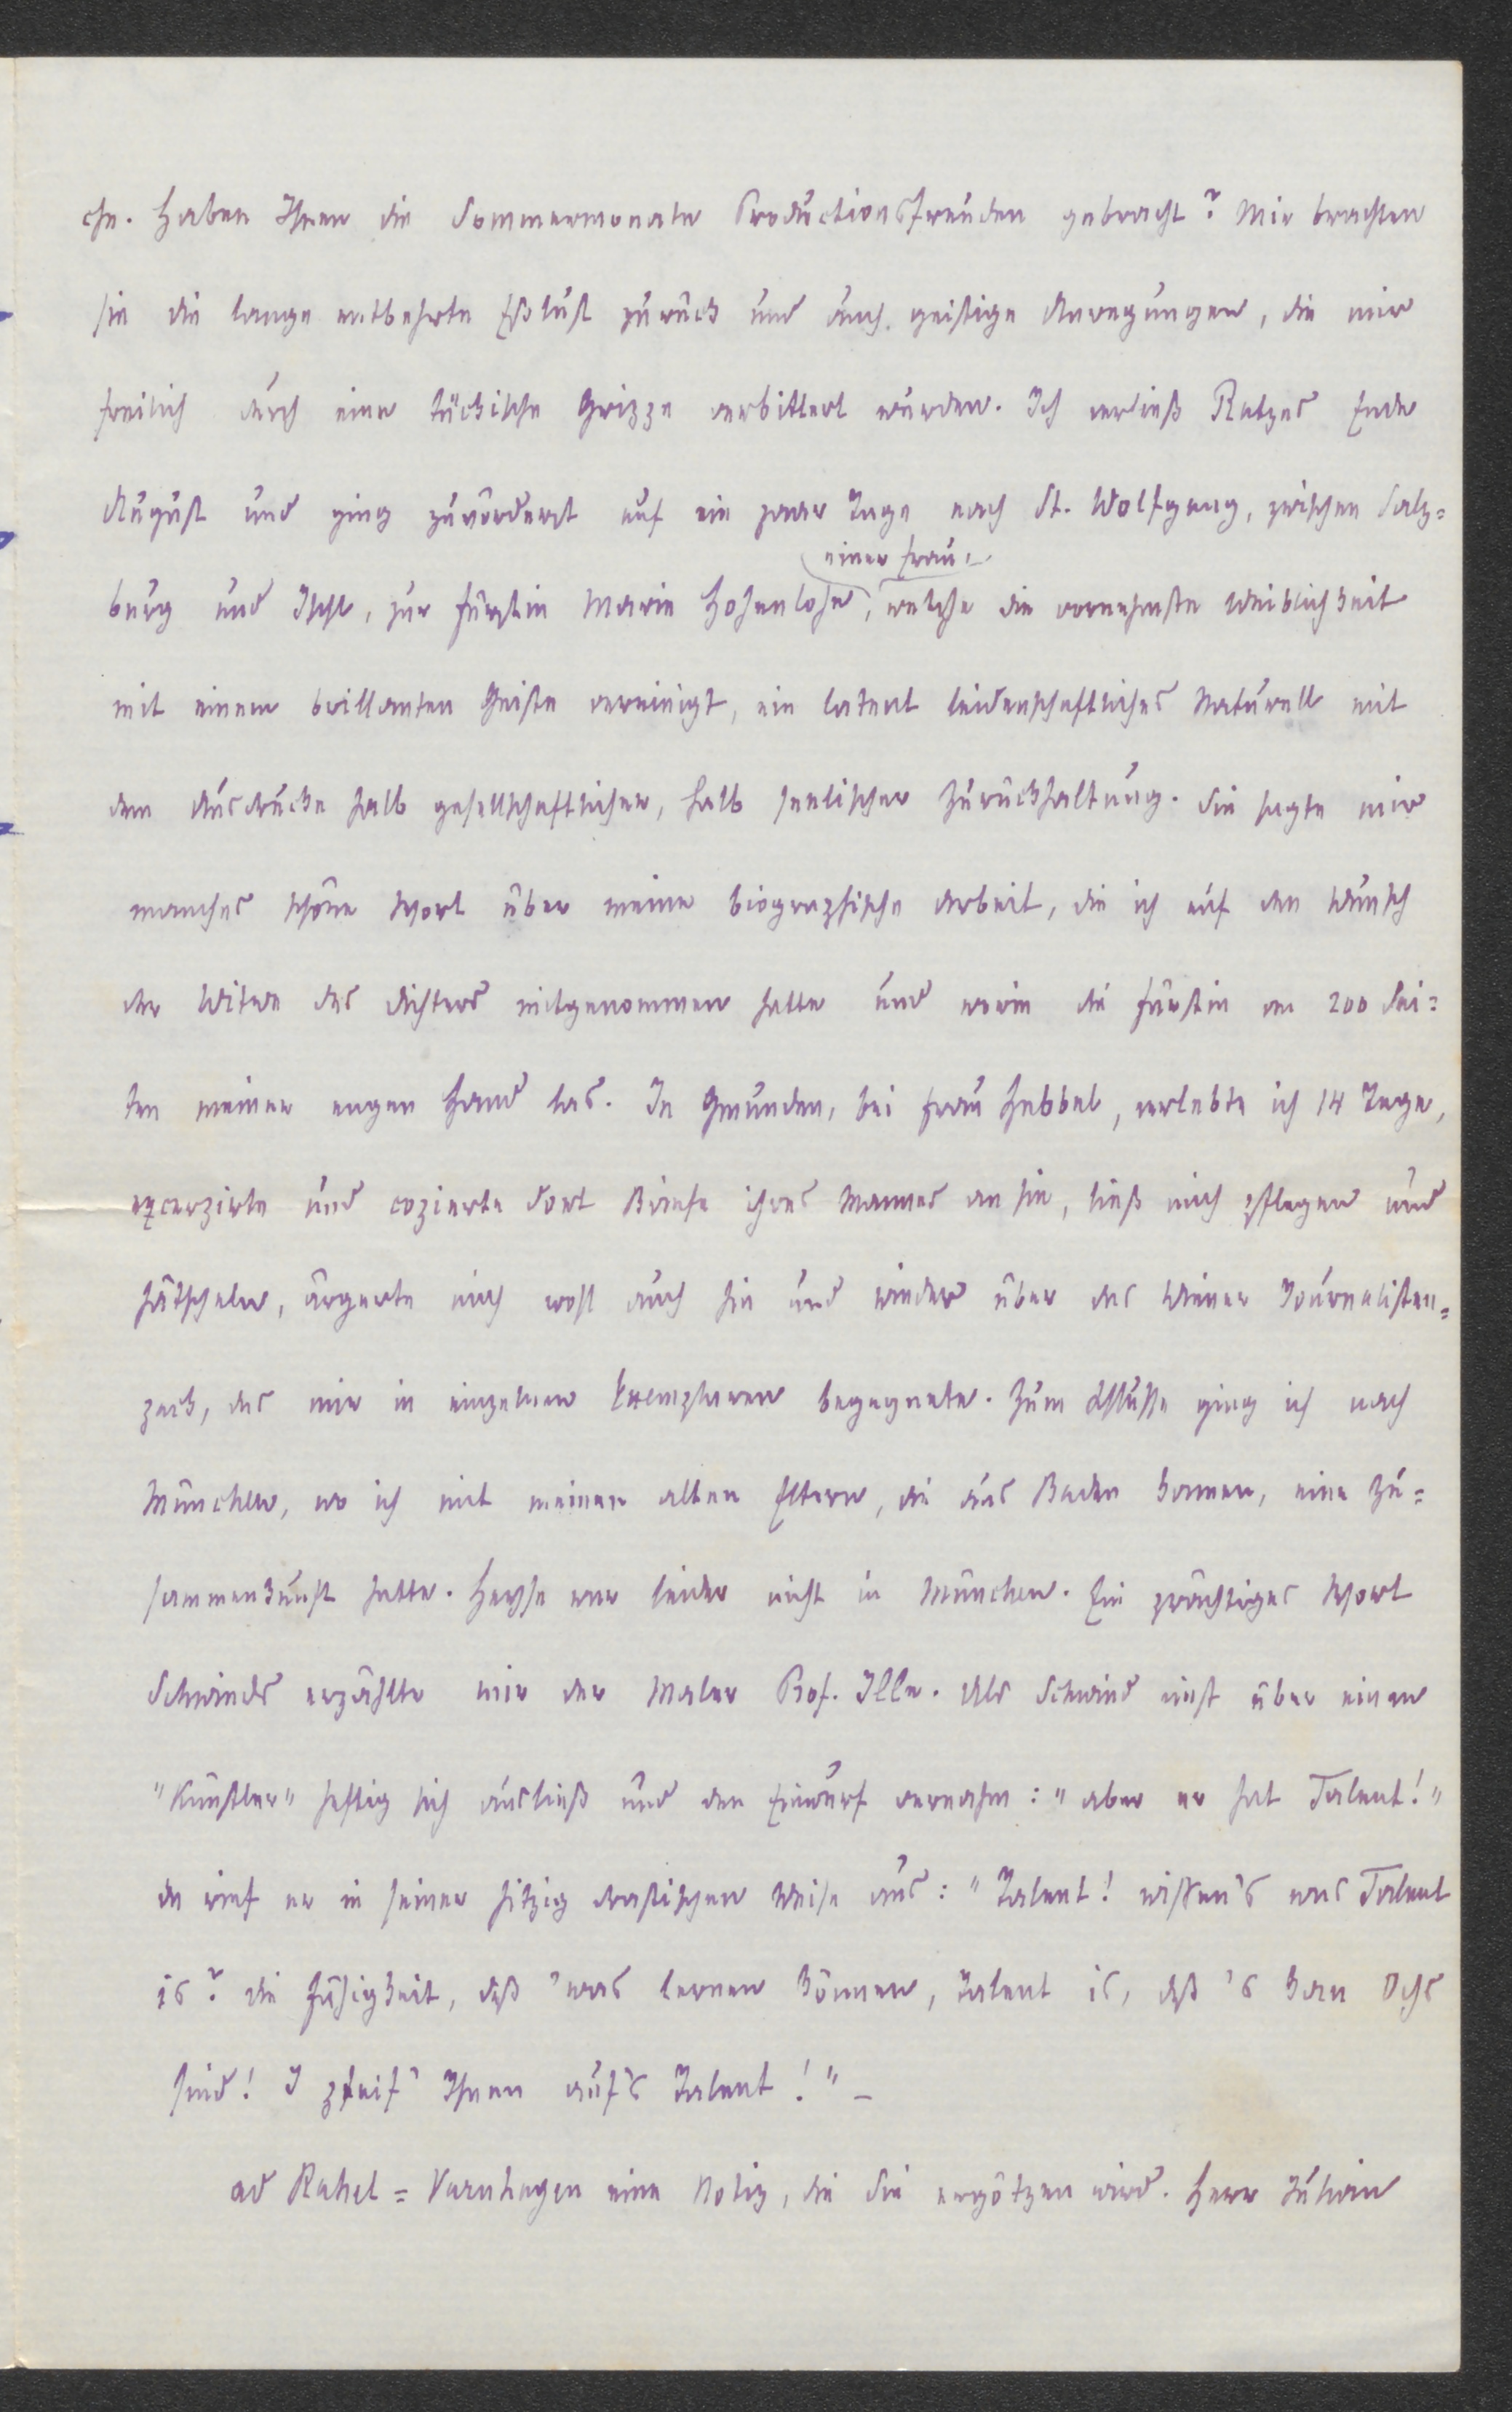 che. Haben Ihnen die Sommermonate Productionsfreuden gebracht? Mir brachten
sie die lange entbehrte Eßlust zurück und auch geistige Anregungen, die mir
freilich durch eine tückische Grippe verbittert wurden. Ich verließ Ratzes Ende
August und ging zuvörderst auf ein paar Tage nach St. Wolfgang, zwischen Salz=
einer Frau,
burg und Ischl, zur Fürstin Marie Hohenlohe, welche die vornehmste Weiblichkeit
mit einem brillanten Geiste vereinigt, ein latent leidenschaftliches Naturell mit
dem Ausdrucke halb gesellschaftlicher, halb seelischer Zurückhaltung. Sie sagte mir
manches schöne Wort über meine biographische Arbeit, die ich auf den Wunsch
der Witwe des Dichters mitgenommen hatte und worin die Fürstin an 200 Sei=
ten meiner engen Hand las. In Gmunden, bei Frau Hebbel, verlebte ich 14 Tage,
excerpirte und copierte dort Briefe ihres Mannes an sie, ließ mich pflegen und
hätscheln, ärgerte mich wohl auch hin und wieder über das Wiener Journalisten=
pack, das mir in einzelnen Exemplaren begegnete. Zum Schlusse ging ich nach
München, wo ich mit meinen alten Eltern, die aus Baden kamen, eine Zu=
sammenkunft hatte. Heyse war leider nicht in München. Ein prächtiges Wort
Schwinds erzählte mir der Maler Prof. Ille. Als Schwind einst über einen
"Künstler" heftig sich ausließ und den Einwurf vernahm: "aber er hat Talent!"
da rief er in seiner hitzig drastischen Weise aus: "Talent! wissen's was Talent
is? die Fähigkeit, daß 'was lernen können, Talent is, daß 's kan Ochs
sind! I pfeif' Ihnen auf's Talent!" –
ad Rahel = Varnhagen eine Notiz, die Sie ergötzen wird. Herr Julian